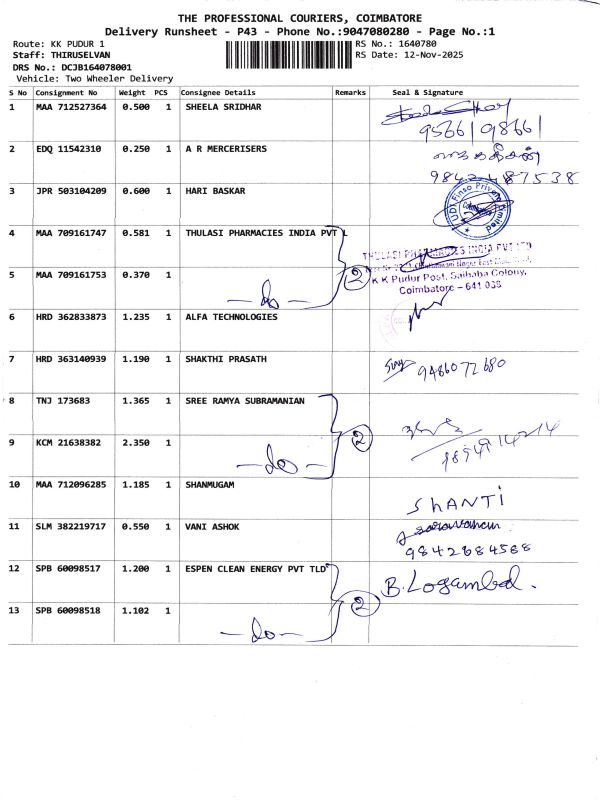 THE PROFESSIONAL COURIERS, COIMBATORE
Delivery Runsheet - P43 - Phone No.:9047080280 - Page No.:1
Route: KK PUDUR 1
RS No.: 1640780
Staff: THIRUSELVAN
RS Date: 12-Nov-2025
DRS No.: DCJB164078001
Vehicle: Two Wheeler Delivery
S No Consignment No Weight PCS Consignee Details Remarks Seal & Signature
1 MAA 712527364 0.500 1 SHEELA SRIDHAR
2 EDQ 11542310 0.250 1 A R MERCERISERS
3 JPR 503104209 0.600 1 HARI BASKAR
UDI Finso Private Limited
Coimbatore
4 MAA 709161747 0.581 1 THULASI PHARMACIES INDIA PVT L
THULASI PHARMACIES INDIA PVT LTD
5 MAA 709161753 0.370 1 -do- 2
K K Pudur Post, Saibaba Colony,
Coimbatore - 641 038
6 HRD 362833873 1.235 1 ALFA TECHNOLOGIES
7 HRD 363140939 1.190 1 SHAKTHI PRASATH 9486072680
8 TNJ 173683 1.365 1 SREE RAMYA SUBRAMANIAN
9 KCM 21638382 2.350 1 -do- 2
10 MAA 712096285 1.185 1 SHANMUGAM SHANTI
11 SLM 382219717 0.550 1 VANI ASHOK saravanan
9842684568
12 SPB 60098517 1.200 1 ESPEN CLEAN ENERGY PVT TLD B. Logambal.
13 SPB 60098518 1.102 1 -do- 2